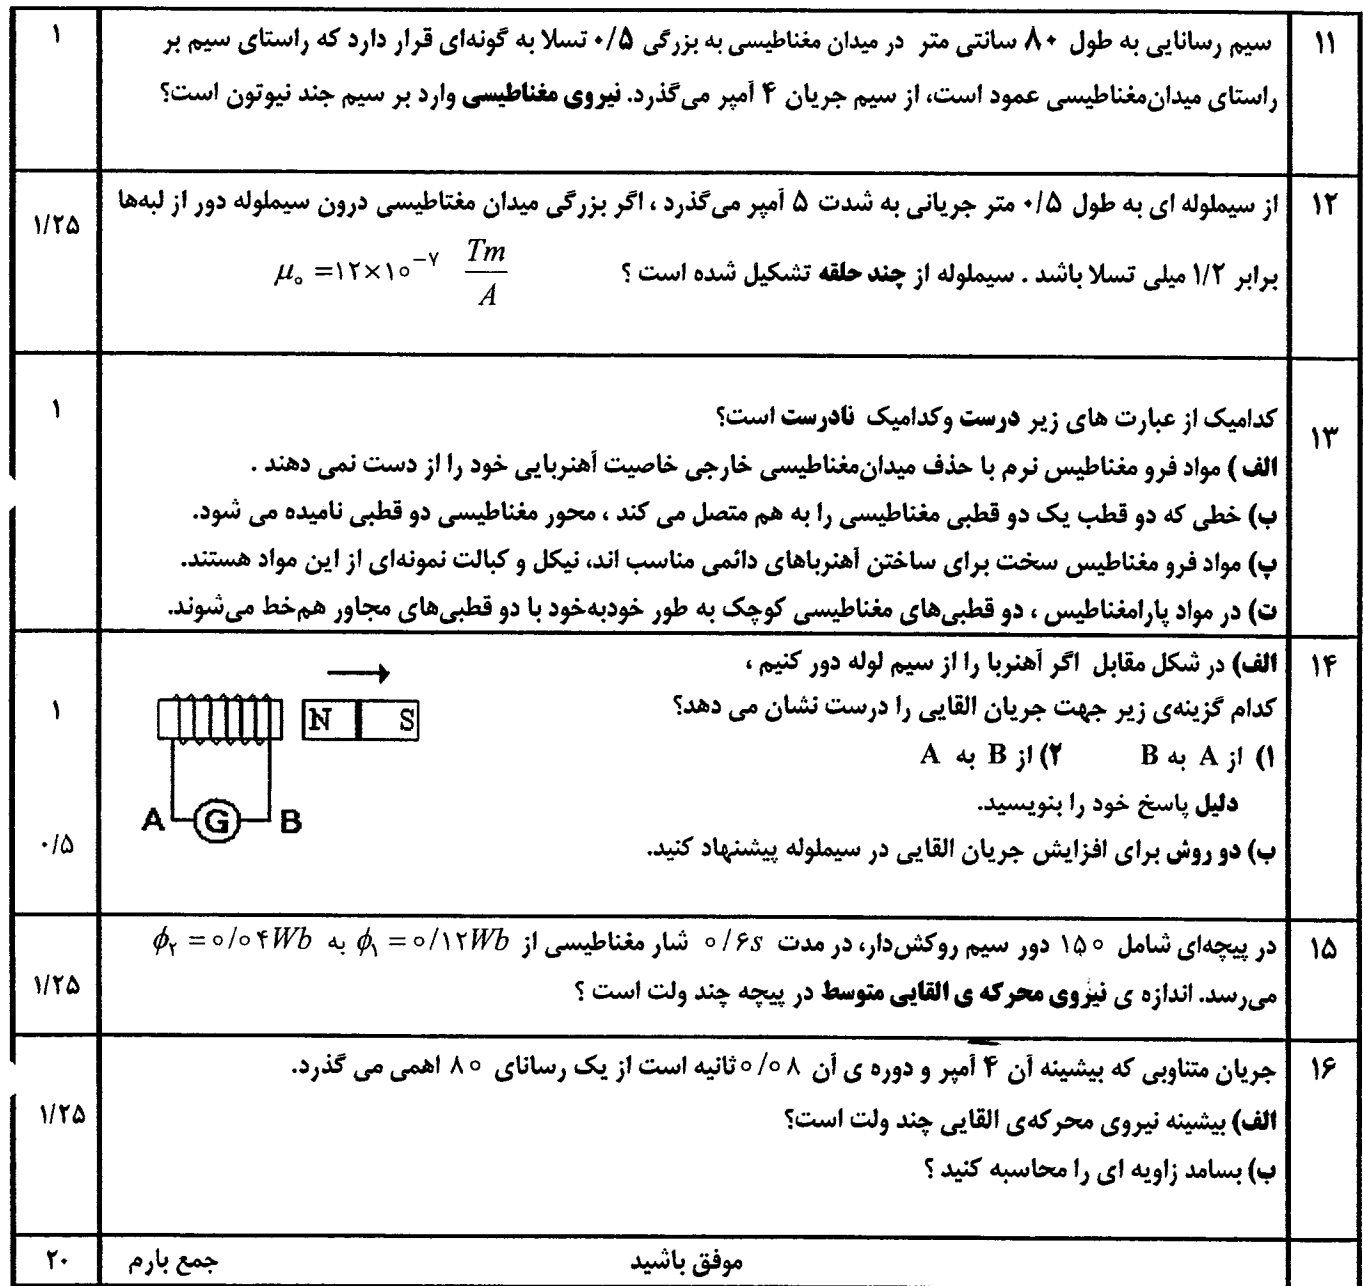 ۱۱ سیم رسانایی به طول ۸۰ سانتی متر در میدان مغناطیسی به بزرگی ۰/۵ تسلا به گونه‌ای قرار دارد که راستای سیم بر ۱
راستای میدان‌مغناطیسی عمود است، از سیم جریان ۴ آمپر می‌گذرد. نیروی مغناطیسی وارد بر سیم جند نیوتون است؟
۱۲ از سیملوله ای به طول ۰/۵ متر جریانی به شدت ۵ آمپر می‌گذرد ، اگر بزرگی میدان مغتاطیسی درون سیملوله دور از لبه‌ها ۱/۲۵
برابر ۱/۲ میلی تسلا باشد . سیملوله از چند حلقه تشکیل شده است ؟ μ₀ =۱۲×۱۰⁻⁷ Tm/A
۱۳ کدامیک از عبارت های زیر درست وکدامیک نادرست است؟ ۱
الف ) مواد فرو مغناطیس نرم با حذف میدان‌مغناطیسی خارجی خاصیت آهنربایی خود را از دست نمی دهند .
ب) خطی که دو قطب یک دو قطبی مغناطیسی را به هم متصل می کند ، محور مغناطیسی دو قطبی نامیده می شود.
پ) مواد فرو مغناطیس سخت برای ساختن آهنرباهای دائمی مناسب اند، نیکل و کبالت نمونه‌ای از این مواد هستند.
ت) در مواد پارامغناطیس ، دو قطبی‌های مغناطیسی کوچک به طور خودبه‌خود با دو قطبی‌های مجاور هم‌خط می‌شوند.
۱۴ الف) در شکل مقابل اگر آهنربا را از سیم لوله دور کنیم ،
کدام گزینه‌ی زیر جهت جریان القایی را درست نشان می دهد؟ N S ۱
۱) از A به B ۲) از B به A
دلیل پاسخ خود را بنویسید. A G B
ب) دو روش برای افزایش جریان القایی در سیملوله پیشنهاد کنید. ۰/۵
۱۵ در پیچه‌ای شامل ۱۵۰ دور سیم روکش‌دار، در مدت ۰/۶s شار مغناطیسی از ϕ₁ = ۰/۱۲Wb به ϕ₂ = ۰/۰۴Wb
می‌رسد. اندازه ی نیروی محرکه ی القایی متوسط در پیچه چند ولت است ؟ ۱/۲۵
۱۶ جریان متناوبی که بیشینه آن ۴ آمپر و دوره ی آن ۰/۰۸ ثانیه است از یک رسانای ۸۰ اهمی می گذرد.
الف) بیشینه نیروی محرکه‌ی القایی چند ولت است؟ ۱/۲۵
ب) بسامد زاویه ای را محاسبه کنید ؟
موفق باشید جمع بارم ۲۰